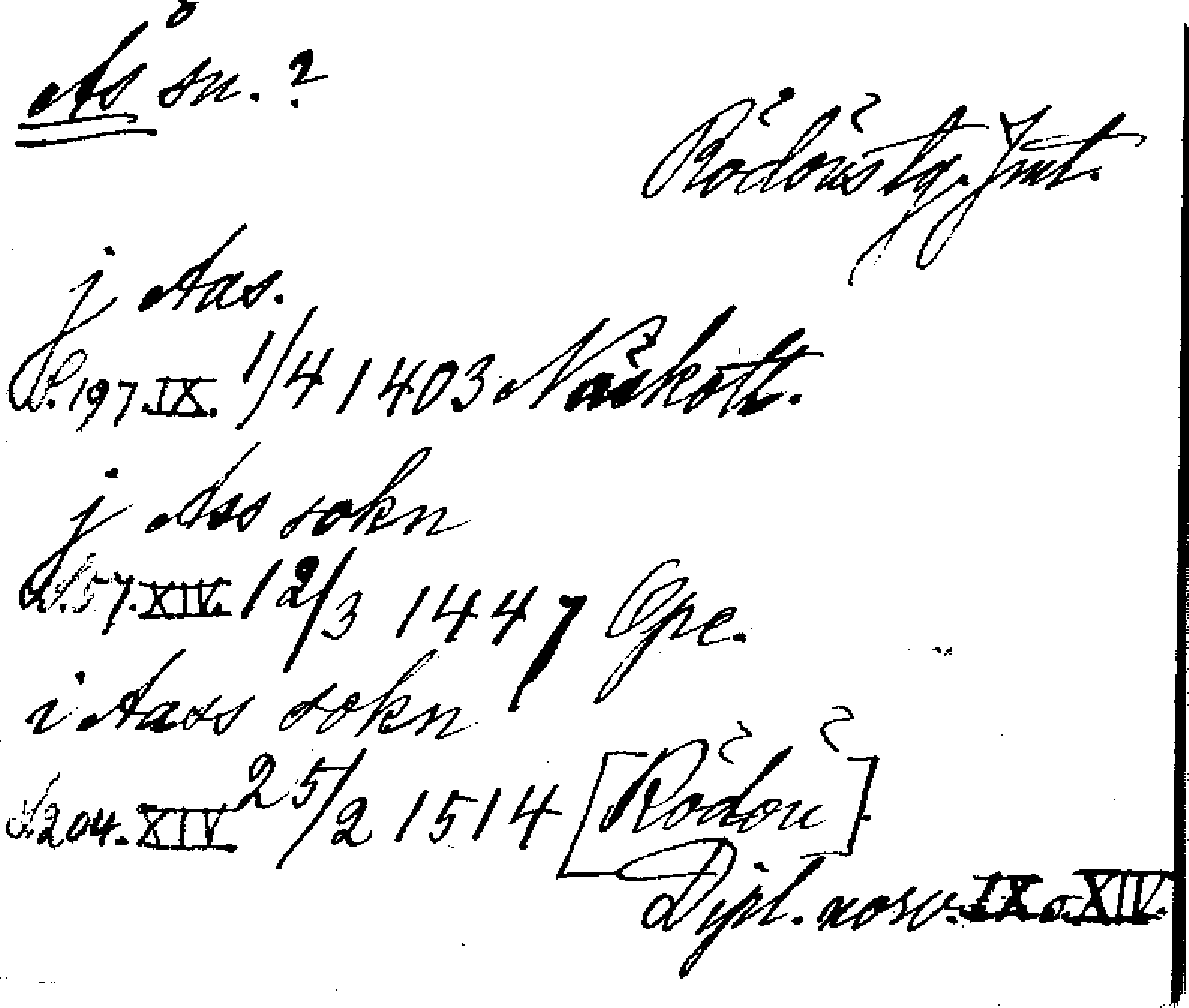 Ås sn.?
Rödöns tg. Jmt.
j Aas.
S. 197. IX. 1/4 1403 Näskott.
j Ass sokn
S. 57. XIV. 12/3 1447 Ope.
i Aass sokn
S. 204. XIV. 25/2 1514 [Rödön]
Dipl. norv. IX o. XIV.